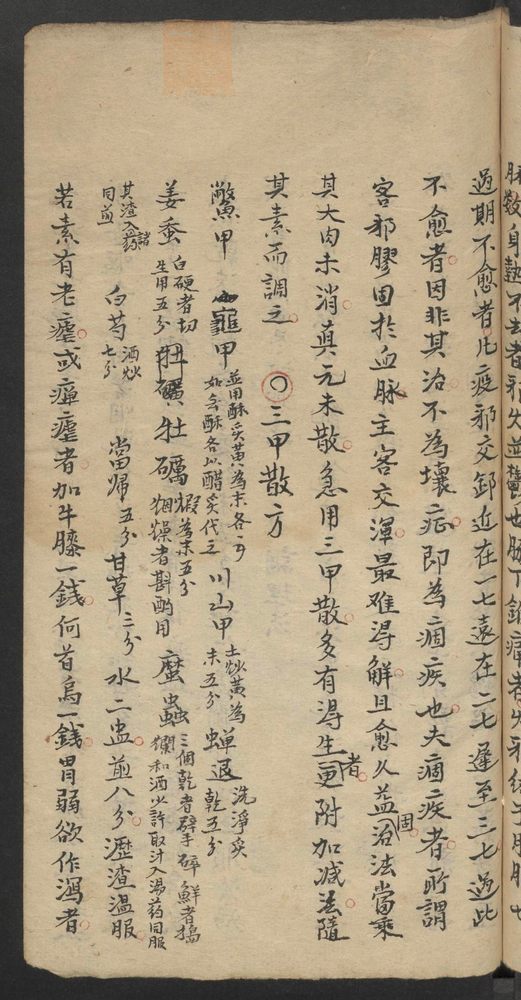 脉數身熱不去者邪火並鬱也脇下
過期不愈者凡疫邪交卸近在一七遠在二七遲至三七過此
不愈者因非其治不為壞症即為痼疾也夫痼疾者所謂
客邪膠固扵血脉主客交渾最难淂解且愈久益固治法當乘
其大肉未消真元未散急用三甲散多有淂生者更附加减法隨
其素而調之 〇三甲散方
鱉甲 龜甲 並用酥炙黄為末各一錢如無酥各以醋炙代之 川山甲 土炒黄為末五分 蟬退 洗淨炙乾五分
姜蚕 白硬者切生用五分 牡礪 煆為末五分咽燥者斟酌用 䗪蟲 三個乾者擘碎鮮者搗爛和酒少許取汁入湯药同服
其渣入諸药同煎 白芍 酒炒七分 當歸 五分 甘草 三分 水二盅煎八分瀝渣溫服
若素有老瘧或癉瘧者加牛膝一錢何首烏一錢胃弱欲作瀉者